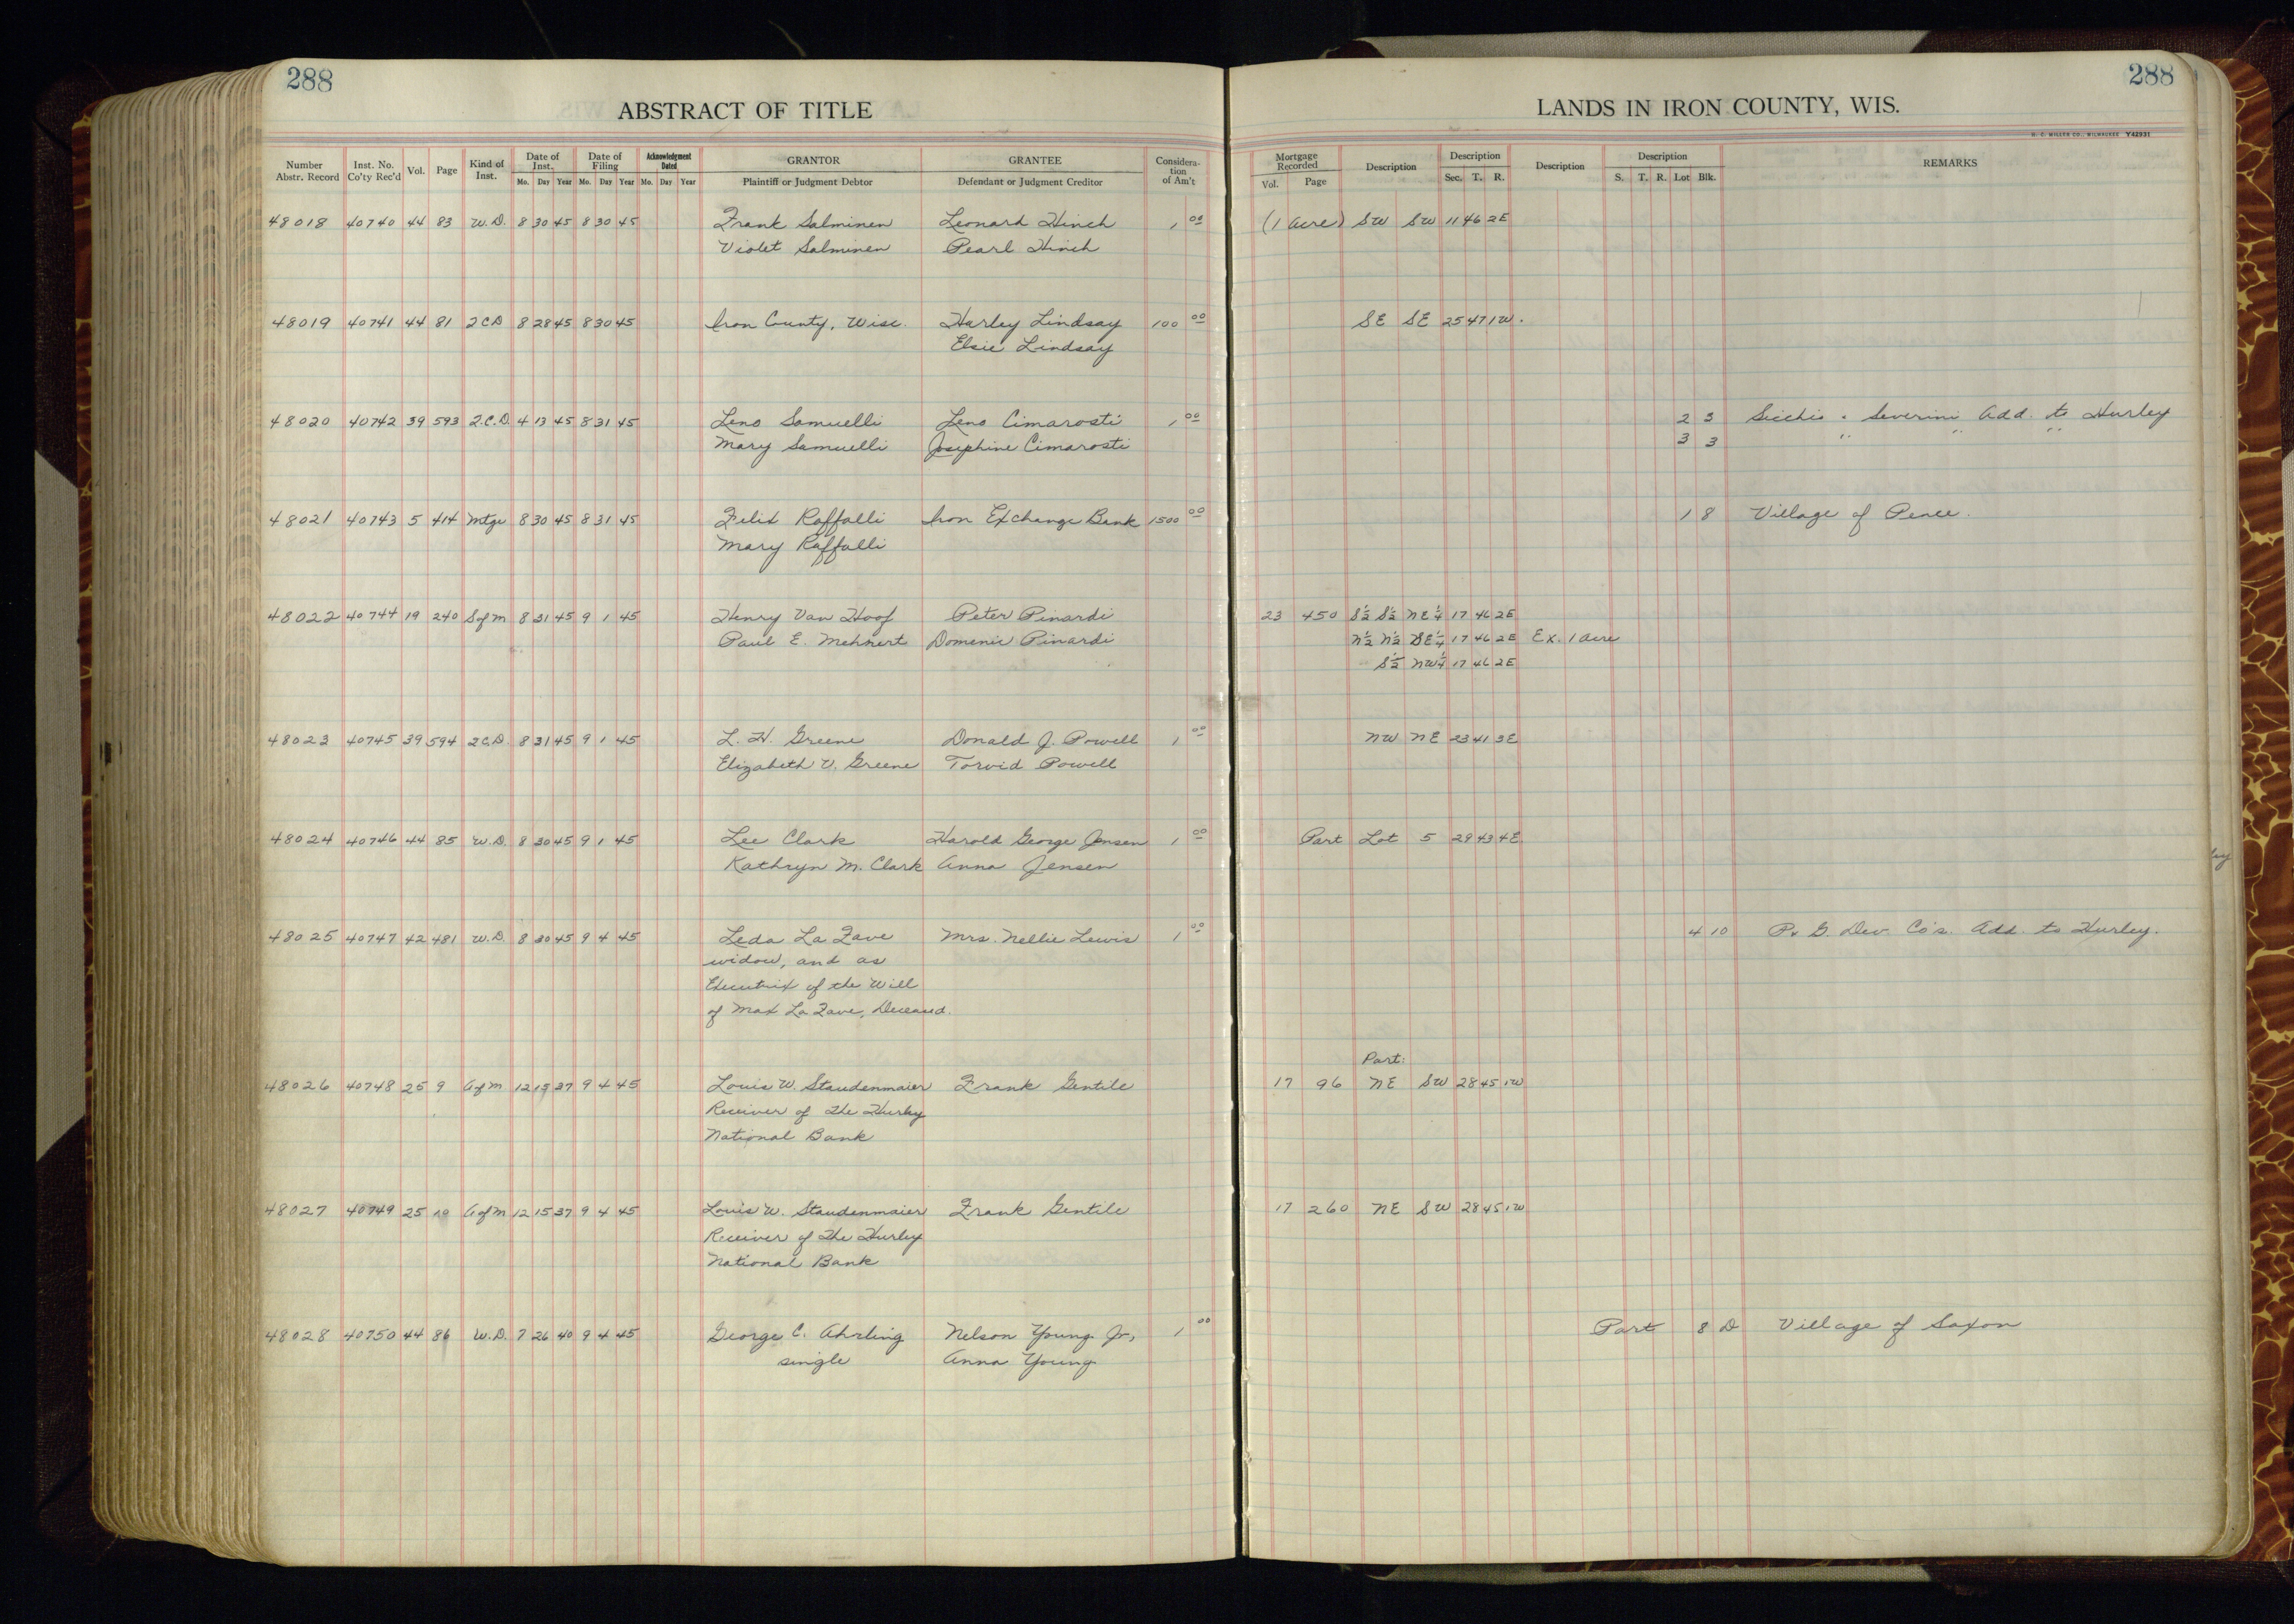 288
288
ABSTRACT OF TITLE
LANDS IN IRON COUNTY, WIS.
H. C. MILLER CO., MILWAUKEE Y42931
Number Abstr. Record Inst. No. Co'ty Rec'd Vol. Page Kind of Inst. Date of Inst. Date of Filing Acknowledgment Dated GRANTOR GRANTEE Considera-tion of Am't Mortgage Recorded Description Description Description Description REMARKS
Mo. Day Year Mo. Day Year Mo. Day Year Plaintiff or Judgment Debtor Defendant or Judgment Creditor Vol. Page Sec. T. R. S. T. R. Lot Blk.
48018 40740 44 83 W.D. 8 30 45 8 30 45 Frank Salminen Leonard Hinch 1 00 (1 acre) SW SW 11 46 2E
Violet Salminen Pearl Hinch
48019 40741 44 81 2CD 8 28 45 8 30 45 Iron County, Wisc. Harley Lindsay 100 00 SE SE 25 47 1W.
Elsie Lindsay
48020 40742 39 593 2.C.D. 4 13 45 8 31 45 Leno Samuelli Leno Cimarosti 1 00 2 3 Severini Add. to Hurley
Mary Samuelli Josephine Cimarosti 3 3 " " "
48021 40743 5 414 Mtge 8 30 45 8 31 45 Felix Raffalli Iron Exchange Bank 1500 00 1 8 Village of Pence.
Mary Raffalli
48022 40744 19 240 S of M 8 31 45 9 1 45 Henry Van Hoof Peter Pinardi 23 450 S½ S½ NE¼ 17 46 2E
Paul E. Mehnert Domenic Pinardi N½ N½ SE¼ 17 46 2E Ex. 1 acre
S½ NW¼ 17 46 2E
48023 40745 39 594 2C.D. 8 31 45 9 1 45 L. H. Greene Donald J. Powell 1 00 NW NE 23 41 3E
Elizabeth V. Greene Torvid Powell
48024 40746 44 85 W.D. 8 30 45 9 1 45 Lee Clark Harold George Jensen 1 00 Part Lot 5 29 43 4E
Kathryn M. Clark Anna Jensen
48025 40747 42 481 W.D. 8 30 45 9 4 45 Leda La Fave Mrs. Nellie Lewis 1 00 4 10 G. Dev. Co's. Add. to Hurley.
widow, and as
Executrix of the Will
of Max La Fave, Deceased.
Part:
48026 40748 25 9 A of M 12 15 37 9 4 45 Louis W. Staudenmaier Frank Gentile 17 96 NE SW 28 45 1W
Receiver of The Hurley
National Bank
48027 40749 25 10 A of M 12 15 37 9 4 45 Louis W. Staudenmaier Frank Gentile 17 260 NE SW 28 45 1W
Receiver of The Hurley
National Bank
48028 40750 44 86 W.D. 7 26 40 9 4 45 George C. Ahrling Nelson Young Jr, 1 00 Part 8 D Village of Saxon
single Anna Young